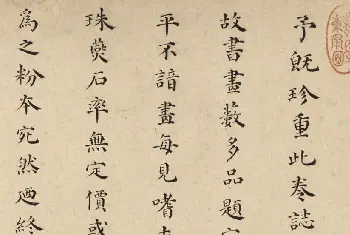 予既珍重此卷誌
故書畫藪多品題
平不諳畫每見嗜
珠藇石率無定價或
爲之粉本宛然廼終